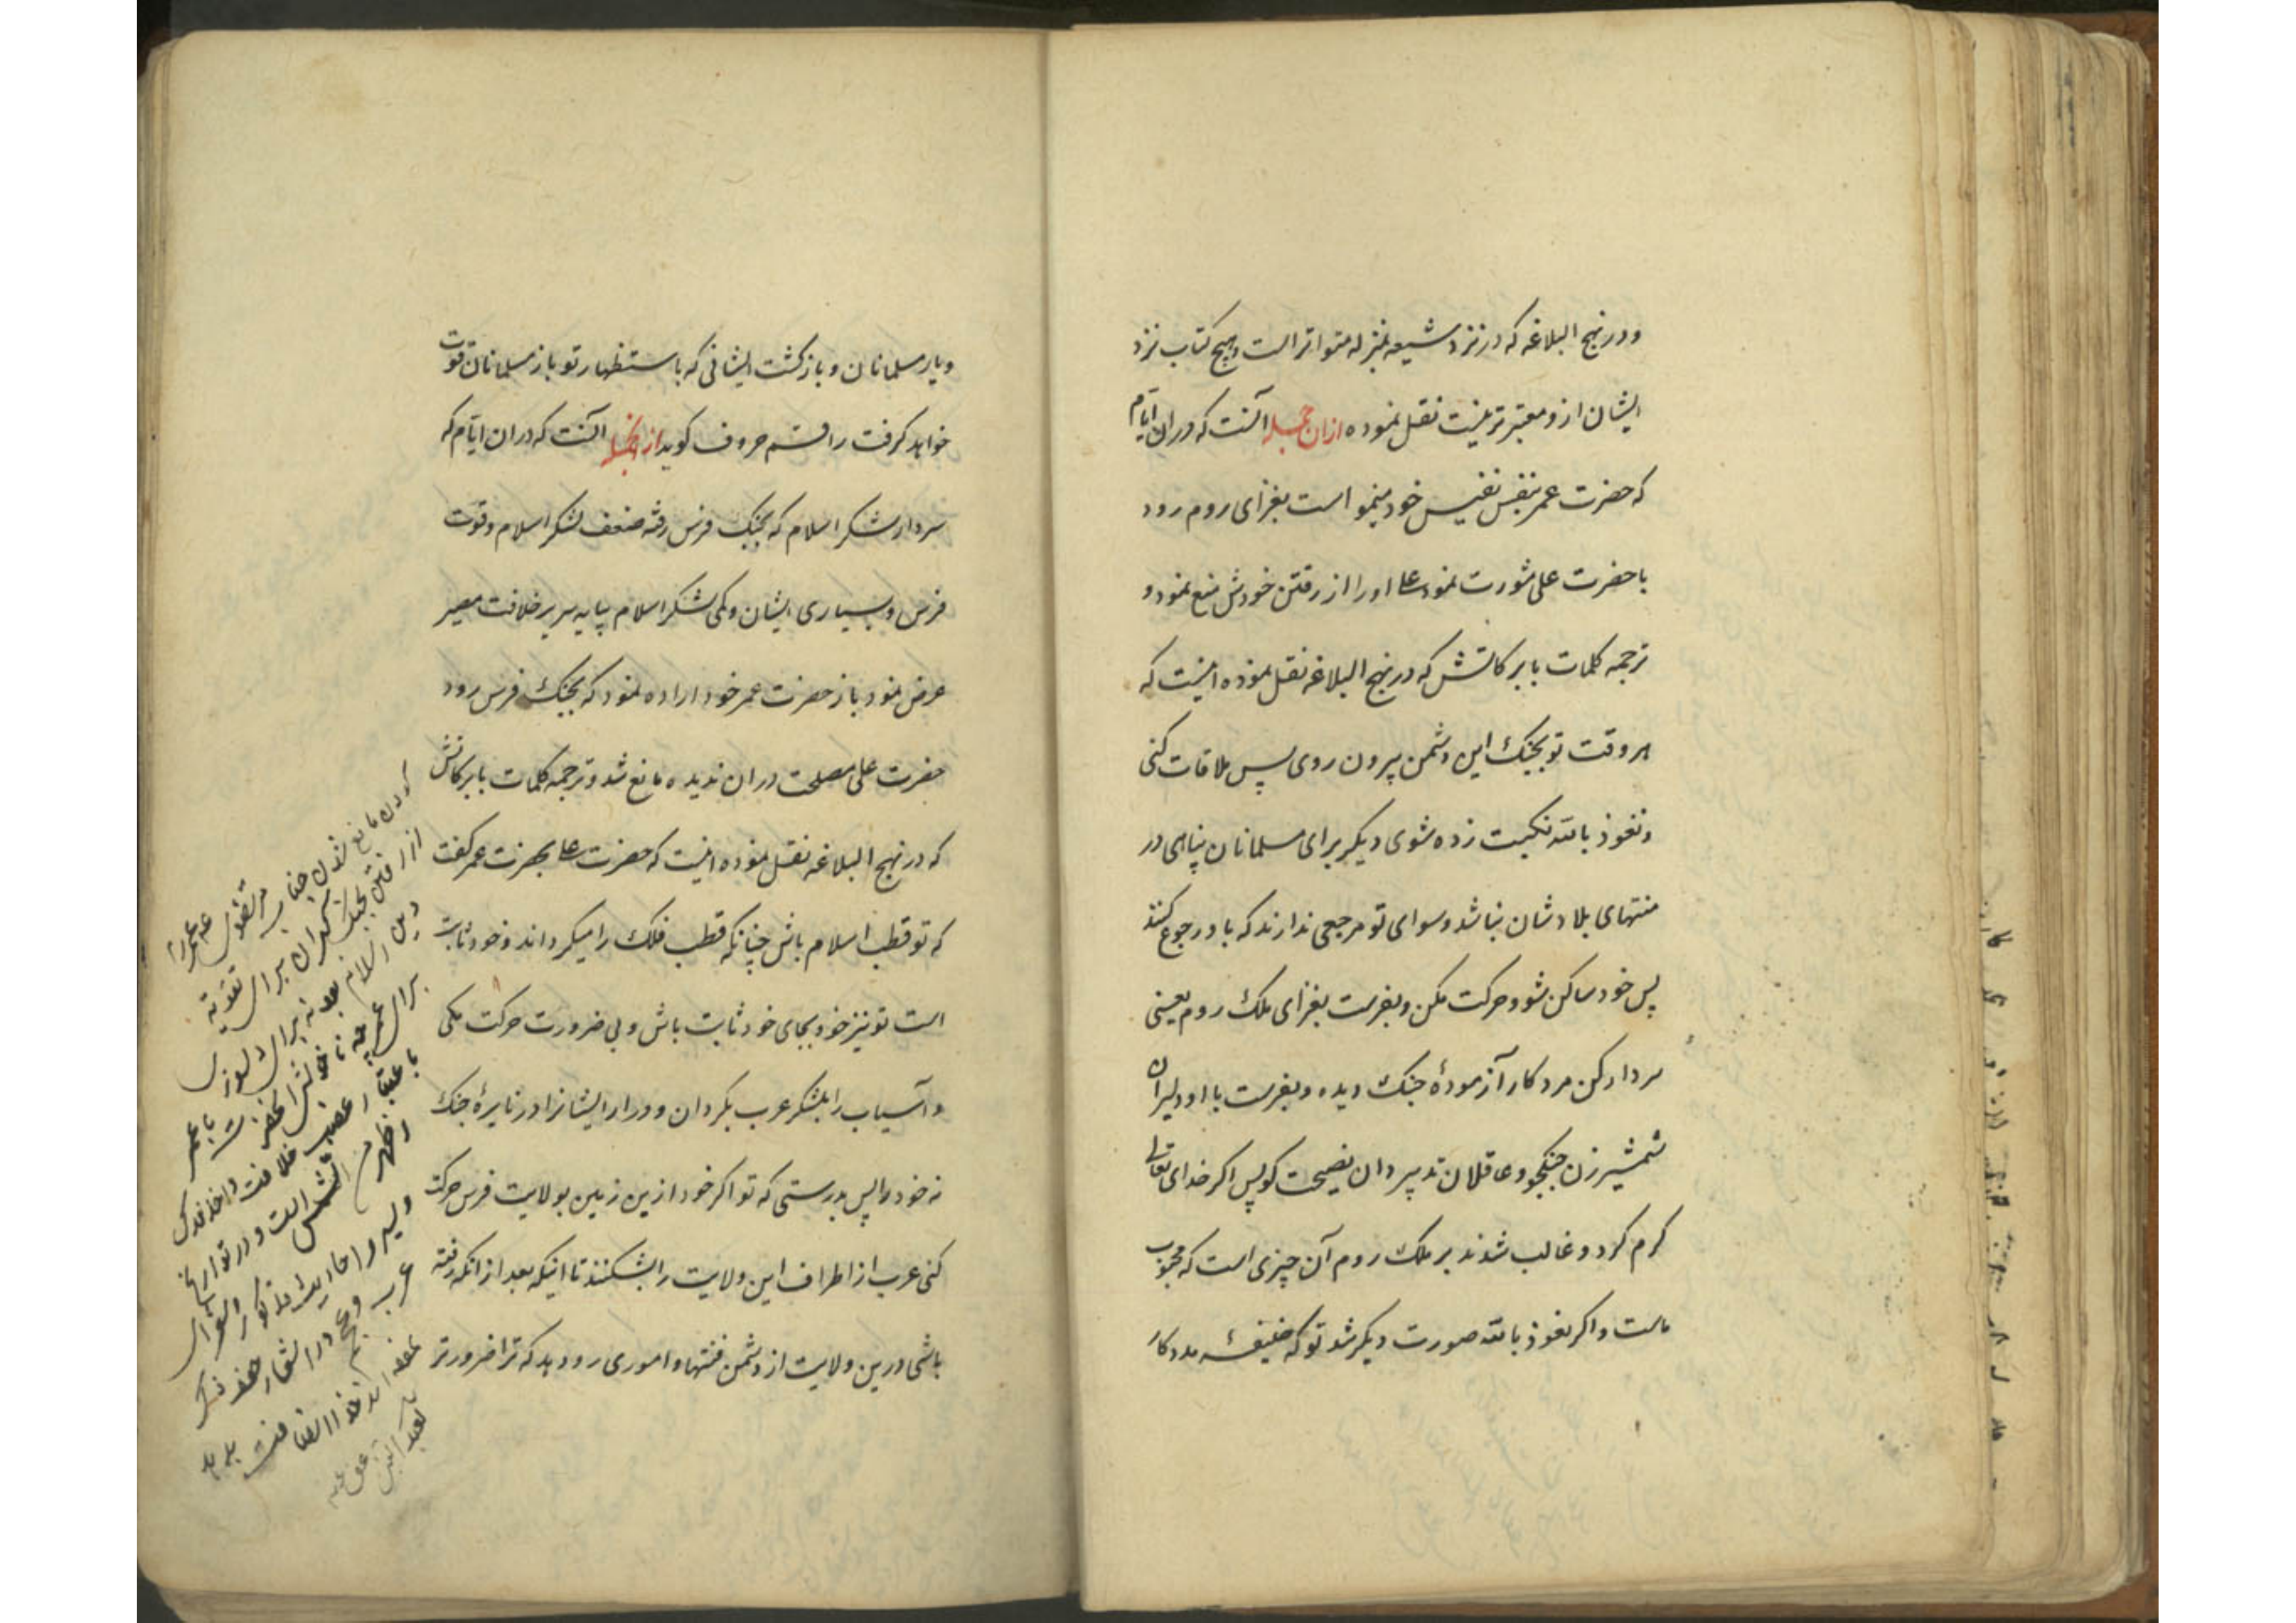 ودر نهج البلاغه که در نزد شیعه بمنزله متواتر است وهیچ کتاب نزد
ایشان ازو معتبر تر نیست نقل نموده ازان جمله آنست که دران ایام
که حضرت عمر بنفس نفیس خود میخواست بغزای روم رود
با حضرت علی مشورت نمود علی اورا از رفتن خودش منع نمود و
ترجمه کلمات بابرکاتش که در نهج البلاغه نقل نموده اینست که
هر وقت تو بجنک این دشمن بیرون روی پس ملاقات کنی
ونعوذ بالله نکبت زده شوی دیکر برای مسلمانان پناهی در
منتهای بلادشان نباشد وسوای تو مرجعی ندارند که باو رجوع کنند
پس خود ساکن شو وحرکت مکن وبفرست بغزای ملک روم یعنی
سردار کن مرد کار آزمودهٔ جنک دیده وبفرست با او دلیران
شمشیرزن جنکجو وعاقلان تدبیر دان نصیحت کو پس اکر خدای تعالی
کرم کرد وغالب شدند بر ملک روم آن چیزی است که محبوب
ماست واکر نعوذ بالله صورت دیکر شد تو که خلیفهٔ مددکار
ویار مسلمانان وبازکشت ایشانی که باستظهار تو باز مسلمانان قوت
خواهد کرفت راقم حروف کوید ازانجمله آنست که دران ایام که
سردار لشکر اسلام که بجنک فرس رفته ضعف لشکر اسلام وقوت
فرس وبسیاری ایشان وکمی لشکر اسلام بپایه سریر خلافت مصیر
عرض نمود باز حضرت عمر خود اراده نمود که بجنک فرس رود
حضرت علی مصلحت دران ندیده مانع شد وترجمه کلمات بابرکاتش
که در نهج البلاغه نقل نموده اینست که حضرت علی بحضرت عمر کفت
که تو قطب اسلام باش چنانکه قطب فلک را میکرداند وخود ثابت
است تو نیز خود بجای خود ثابت باش وبی ضرورت حرکت مکن
وآسیاب را بلشکر عرب بکردان ودرار ایشانرا در نایرهٔ جنک
نه خود را پس بدرستی که تو اکر خود ازین زمین بولایت فرس حرکت
کنی عرب از اطراف این ولایت را بشکنند تا اینکه بعد از انکه رفته
باشی درین ولایت از دشمن فتنها واموری رو دهد که ترا ضرورتر
مانع شدن جناب مرتضوی
از رفتن بجنک
دین اسلام بوده نه برای دلسوزی با عمر
برای عمر چه
غصب خلافت
الشمس است ودر تواریخ
وسیر واحادیث
عرب وعجم در اشعار